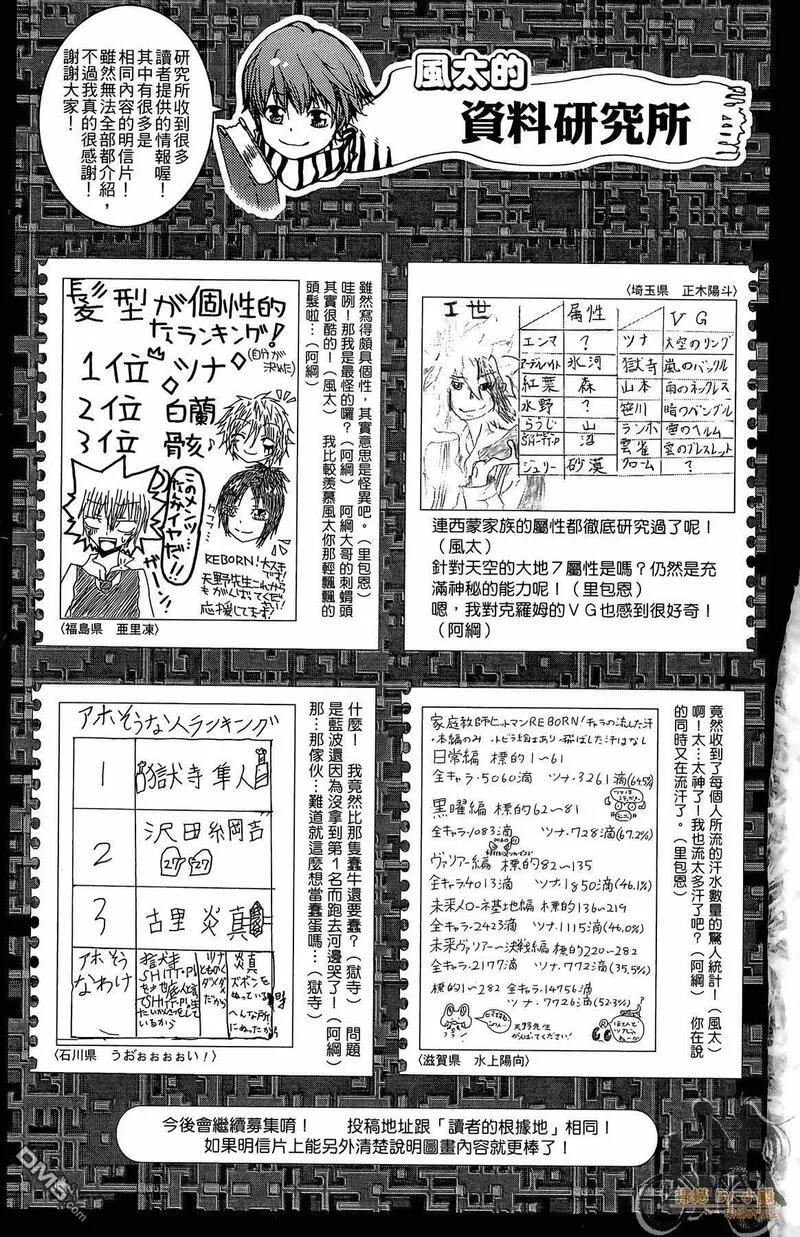 風太的
資料研究所
研究所收到很多
讀者提供的情報喔！
其中有很多是
相同內容的明信片！
雖然無法全部都介紹，
不過我真的很感謝！
謝謝大家！
〈埼玉県　正木陽斗〉
I世
属性
VG
エンマ
？
ツナ
大空のリング
アーデルハイト
氷河
獄寺
嵐のバックル
紅葉
森
山本
雨のネックレス
水野
？
笹川
晴のバングル
らうじ
山
ランボ
雷のヘルム
SHITT・P
沼
雲雀
雲のブレスレット
ジュリー
砂漠
クローム
？
連西蒙家族的屬性都徹底研究過了呢！
（風太）
針對天空的大地７屬性是嗎？仍然是充
滿神秘的能力呢！（里包恩）
嗯，我對克羅姆的ＶＧ也感到很好奇！
（阿綱）
髪型が個性的
なランキング！
(自分が
決めた)
1位 ツナ
2位 白蘭
3位 骸
このメンツ…
なんかイヤだ!!
REBORN!大スキです!!
天野先生これから
もがんばってください!!
応援してます!!
〈福島県　亜里凍〉
雖然寫得頗具個性，其實意思是怪異吧。（里包恩）
哇咧！那我是最怪的囉？（阿綱）　阿綱大哥的刺蝟頭
其實很酷的！（風太）　我比較羨慕風太你那輕飄飄的
頭髮啦…（阿綱）
竟然收到了每個人所流的汗水數量的驚人統計！（風太）
啊！太…太神了！我也流太多汗了吧？（阿綱）　你在說
的同時又在流汗了。（里包恩）
家庭教師ヒットマンREBORN!キャラの流した汗
・本編のみ ・トビラ絵はあり ・飛ばした汗はなし
日常編 標的1〜61
全キャラ・5060滴 ツナ・3261滴(64.5%)
黒曜編 標的62〜81
全キャラ・1083滴 ツナ・728滴(67.2%)
ヴァリアー編 標的82〜135
全キャラ・4013滴 ツナ・1850滴(46.1%)
未来メローネ基地編 標的136〜219
全キャラ・2423滴 ツナ・1115滴(46.0%)
未来ヴァリアー〜決戦編 標的220〜282
全キャラ・2177滴 ツナ・772滴(35.5%)
標的1〜282 全キャラ・14756滴
ツナ・7726滴(52.3%)
天野先生
がんばってください!
〈滋賀県　水上陽向〉
アホそうな人ランキング
1
獄寺 隼人
2
沢田 綱吉
27
27
3
古里 炎真
アホそう
なわけ
獄寺
SHITT・P!
ツナ
ともかく
ダメダメ
だから
炎真
ズボンを
ぬっている時
へんな所
にぬったから
〈石川県　うおぉぉぉぉい！〉
什麼！　我竟然比那隻蠢牛還要蠢？（獄寺）　問題
是藍波還因為沒拿到第１名而跑去河邊哭了！（阿綱）
那…那傢伙…難道就這麼想當蠢蛋嗎…（獄寺）
今後會繼續募集唷！　投稿地址跟「讀者的根據地」相同！
如果明信片上能另外清楚說明圖畫內容就更棒了！
DM5.COM